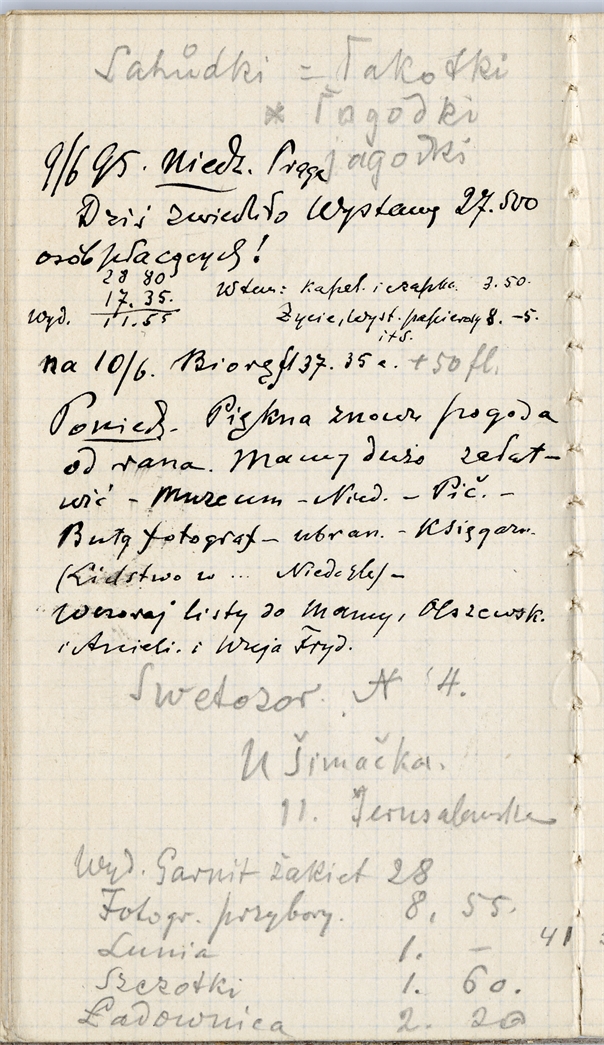 Sahůdki = Łakotki
* Łagodki
jagodki
9/6 95. Niedz. Praga
Dziś zwiedziło Wystawę 27.500
osób płacących!
28 80
17. 35.
wyd. 11.55
W tem: kapel. i czapka 3.50.
Życie, Wyst. papierosy 8. -5.
na 10/6. Biorę fl 37. 35 c. +50 fl.
Poniedz. Piękna znowu pogoda
od rana. Mamy dużo załat-
wić - Muzeum - Nied. - Pič. -
Buty fotograf - ubran. - Księgarn.
(Lidstwo w ... Niedziele) -
Wczoraj listy do Mamy, Olszewsk.
i Anieli. i Wuja Fryd.
Swetozor. N 4.
U Šimačka.
11. Jerusalemska
Wyd. Garnit żakiet 28
Fotogr. przybory. 8, 55.
Lunia 1. -
41
Szczotki 1. 60.
Ładownica 2. 20